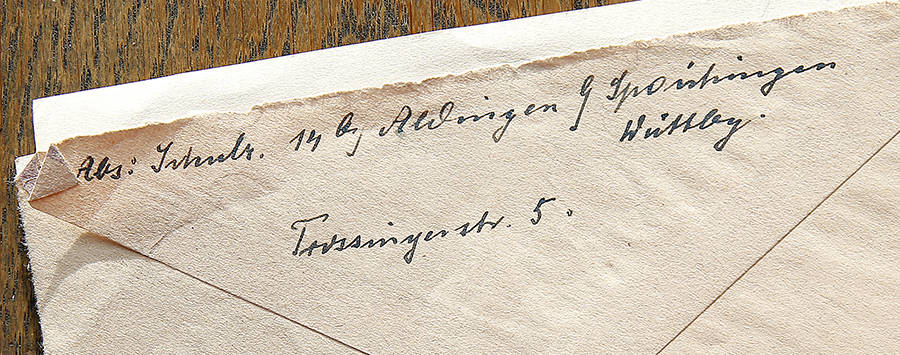 Abs: Schulz. 14 b, Aldingen / Spaichingen
Württbg.
Trossingerstr. 5.